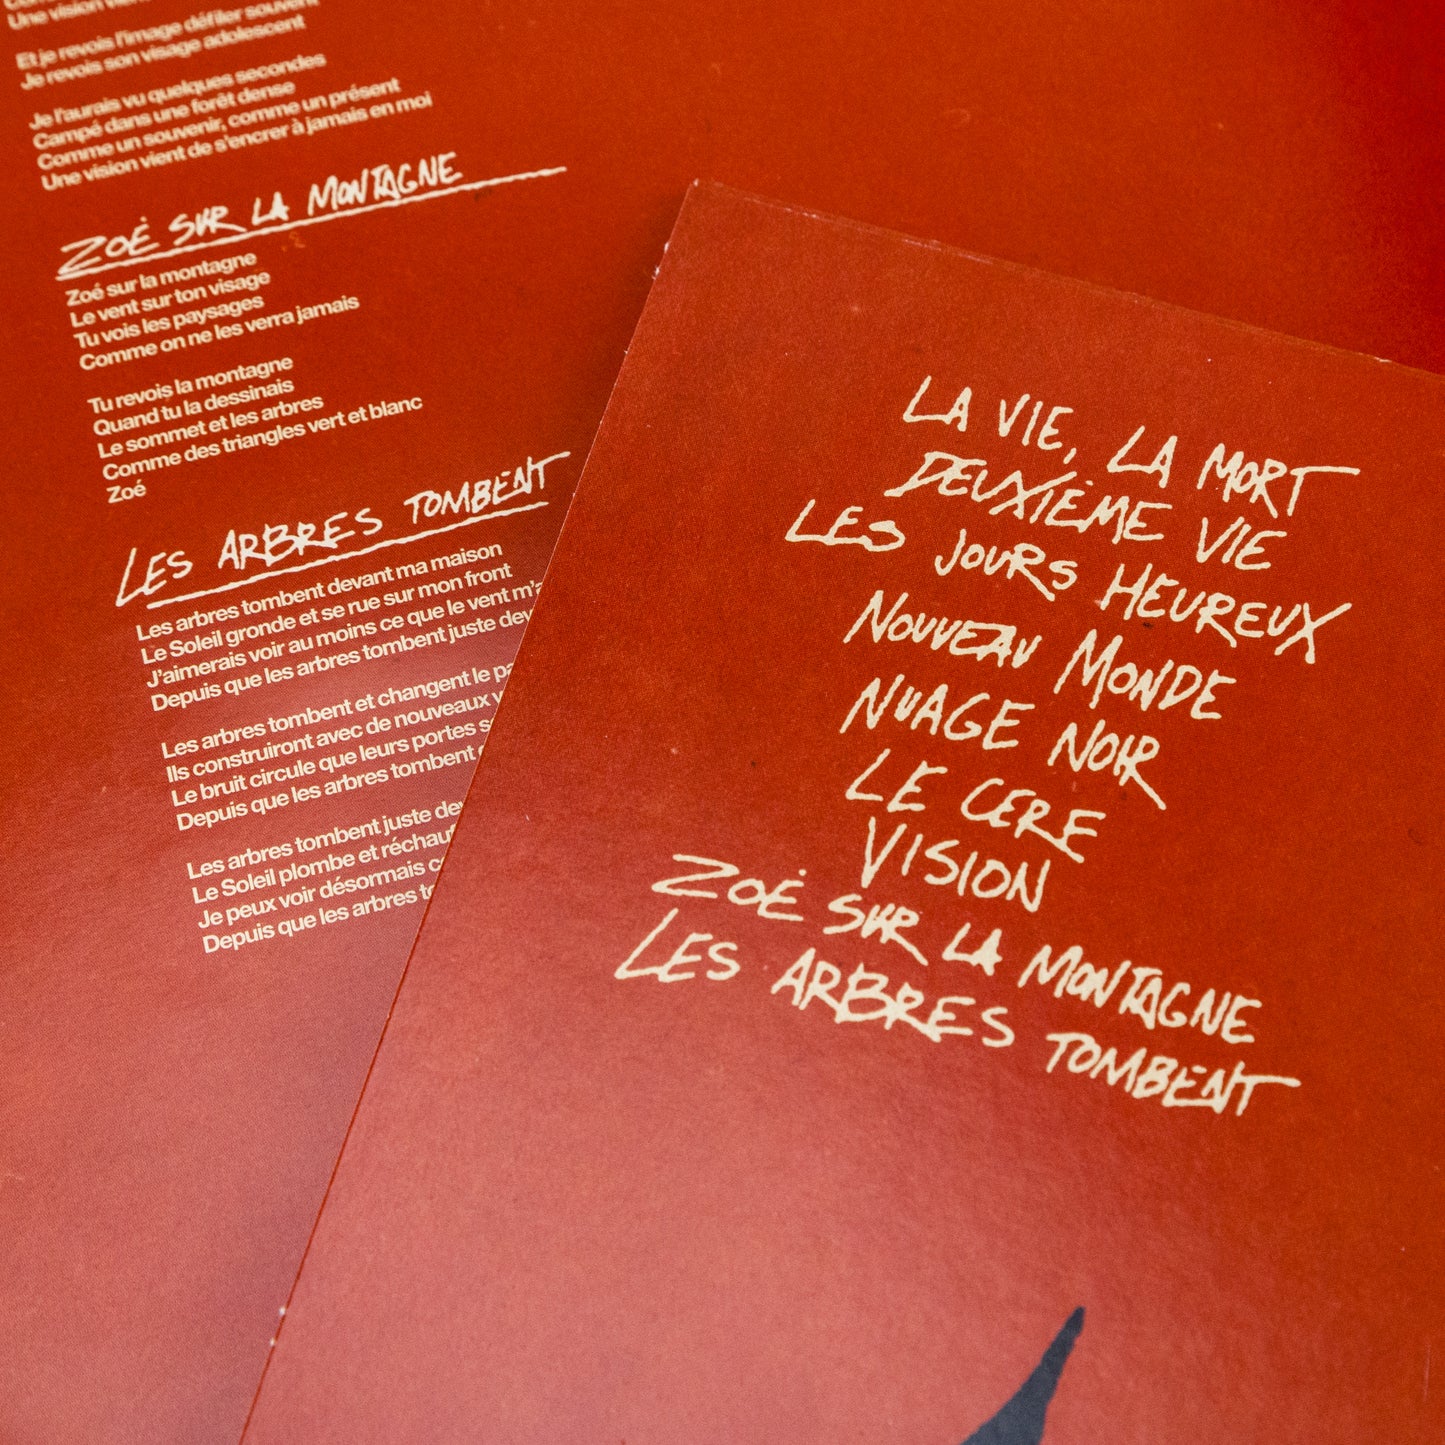 Une vision vien
Et je revois l'image défiler souvent
Je revois son visage adolescent
Je l'aurais vu quelques secondes
Campé dans une forêt dense
Comme un souvenir, comme un présent
Une vision vient de s'encrer à jamais en moi
ZOÉ SUR LA MONTAGNE
Zoé sur la montagne
Le vent sur ton visage
Tu vois les paysages
Comme on ne les verra jamais
Tu revois la montagne
Quand tu la dessinais
Le sommet et les arbres
Comme des triangles vert et blanc
Zoé
LES ARBRES TOMBENT
Les arbres tombent devant ma maison
Le Soleil gronde et se rue sur mon front
J'aimerais voir au moins ce que le vent m'a
Depuis que les arbres tombent juste dev
Les arbres tombent et changent le pa
Ils construiront avec de nouveaux v
Le bruit circule que leurs portes s
Depuis que les arbres tombent
Les arbres tombent juste dev
Le Soleil plombe et réchau
Je peux voir désormais c
Depuis que les arbres to
LA VIE, LA MORT
DEUXIÈME VIE
LES JOURS HEUREUX
NOUVEAU MONDE
NUAGE NOIR
LE CERF
VISION
ZOÉ SUR LA MONTAGNE
LES ARBRES TOMBENT